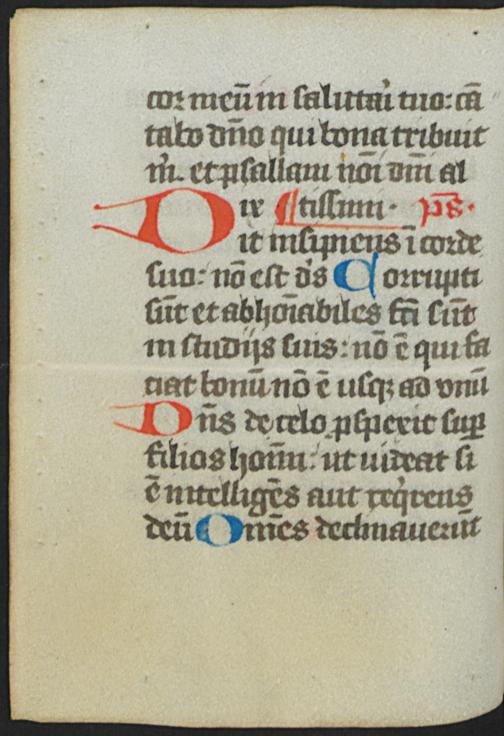 cor meū in salutari tuo: cā
tabo dn̄o qui bona tribuit
m. et psallam noī dn̄i al
ix tissimi. ps̄.
Dit insipiens ī corde
suo: nō est ds̄ Corrupti
sūt et abhoīabiles fcī sūt
in studijs suis: nō ē qui fa
ciat bonū nō ē usqꝫ ad vnū
Dn̄s de celo ꝓspexit sup
filios hoīm: ut uideat si
ē intelligēs aut reqͥrens
deū Omēs declinauerūt